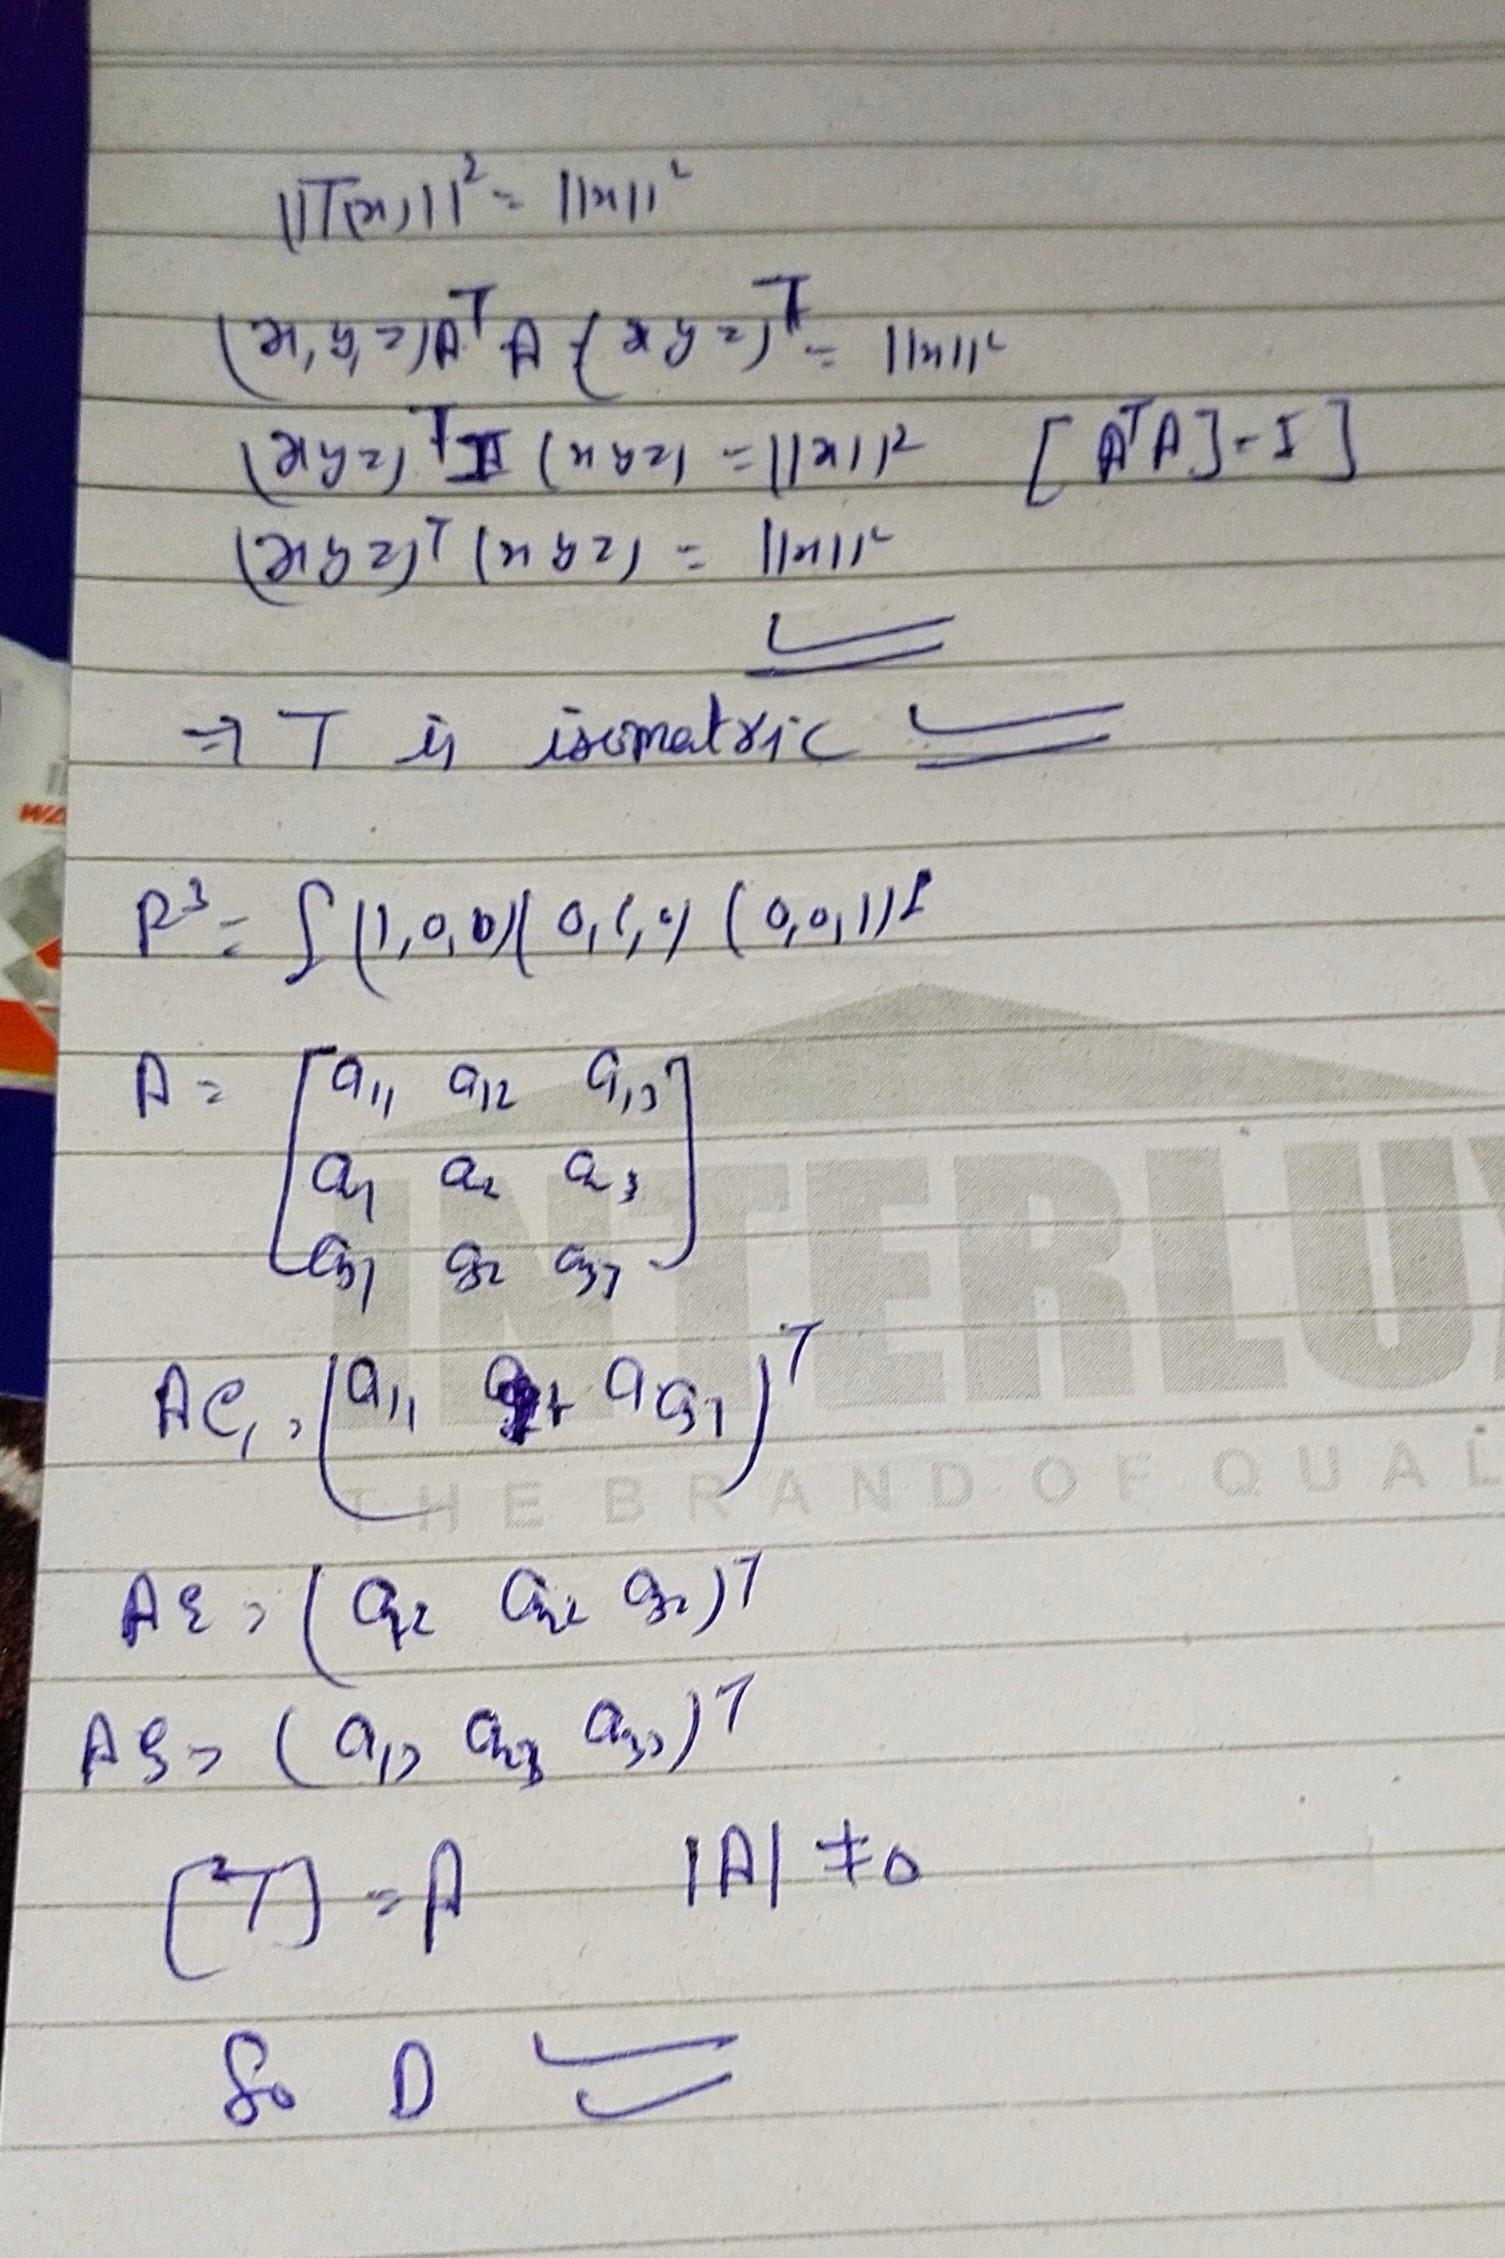 ||T(x)||² = ||x||²
(x, y, z)Aᵀ A (x y z)ᵀ = ||x||²
(x y z)ᵀ I (x y z) = ||x||² [AᵀA] = I]
(x y z)ᵀ (x y z) = ||x||²
⇒ T is isometric
R³ = { (1,0,0)(0,1,0) (0,0,1)}
A = [a₁₁ a₁₂ a₁₃
a₂₁ a₂₂ a₂₃
a₃₁ a₃₂ a₃₃]
INTERLU
Ae₁ = (a₁₁ a₃₁)ᵀ
THE BRAND OF QUAL
Ae₂ = (a₁₂ a₂₂ a₃₂)ᵀ
Ae₃ = (a₁₃ a₂₃ a₃₃)ᵀ
[T] = A |A| ≠ 0
So D